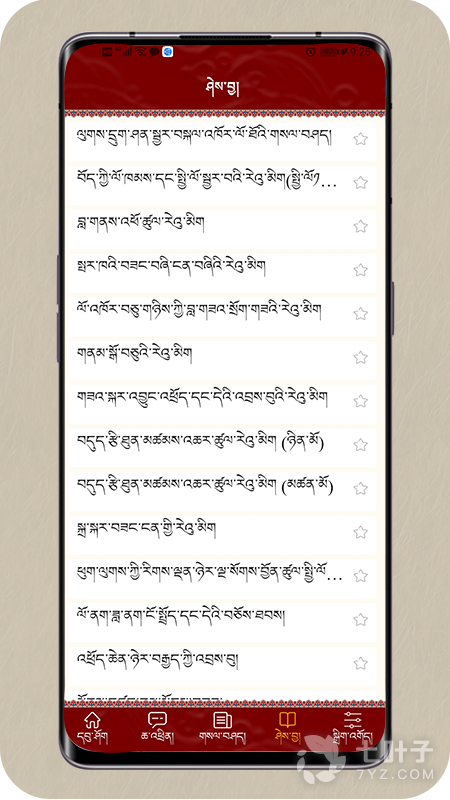 9:25
ཤེས་བྱ།
ལུགས་དྲུག་ཤན་སྦྱར་བསྐལ་འཁོར་ལོ་ཐོའི་གསལ་བཤད།
བོད་ཀྱི་ལོ་ཁམས་དང་སྤྱི་ལོ་སྦྱར་བའི་རེའུ་མིག(སྤྱི་ལོ༡...
བླ་གནས་འཕོ་ཚུལ་རེའུ་མིག
སྤར་ཁའི་བཟང་བཞི་ངན་བཞིའི་རེའུ་མིག
ལོ་འཁོར་བཅུ་གཉིས་ཀྱི་བླ་གཟའ་སྲོག་གཟའི་རེའུ་མིག
གནམ་སྒོ་བཅུའི་རེའུ་མིག
གཟའ་སྐར་འབྱུང་འཕྲོད་དང་དེའི་འབྲས་བུའི་རེའུ་མིག
བདུད་རྩི་ཐུན་མཚམས་འཆར་ཚུལ་རེའུ་མིག (ཉིན་མོ)
བདུད་རྩི་ཐུན་མཚམས་འཆར་ཚུལ་རེའུ་མིག (མཚན་མོ)
སྐྲ་སྐར་བཟང་ངན་གྱི་རེའུ་མིག
ཕུག་ལུགས་ཀྱི་རིགས་ལྡན་ཉེར་ལྔ་སོགས་བྱོན་ཚུལ་སྤྱི་ལོ...
ལོ་ནག་ཟླ་ནག་ངོ་སྤྲོད་དང་དེའི་བཅོས་ཐབས།
འཕྲོད་ཆེན་ཉེར་བརྒྱད་ཀྱི་འབྲས་བུ།
དབུ་ཤོག
ཆ་འཕྲིན།
གསལ་བཤད།
ཤེས་བྱ།
སྒྲིག་འགོད།
七叶子
7YZ.COM